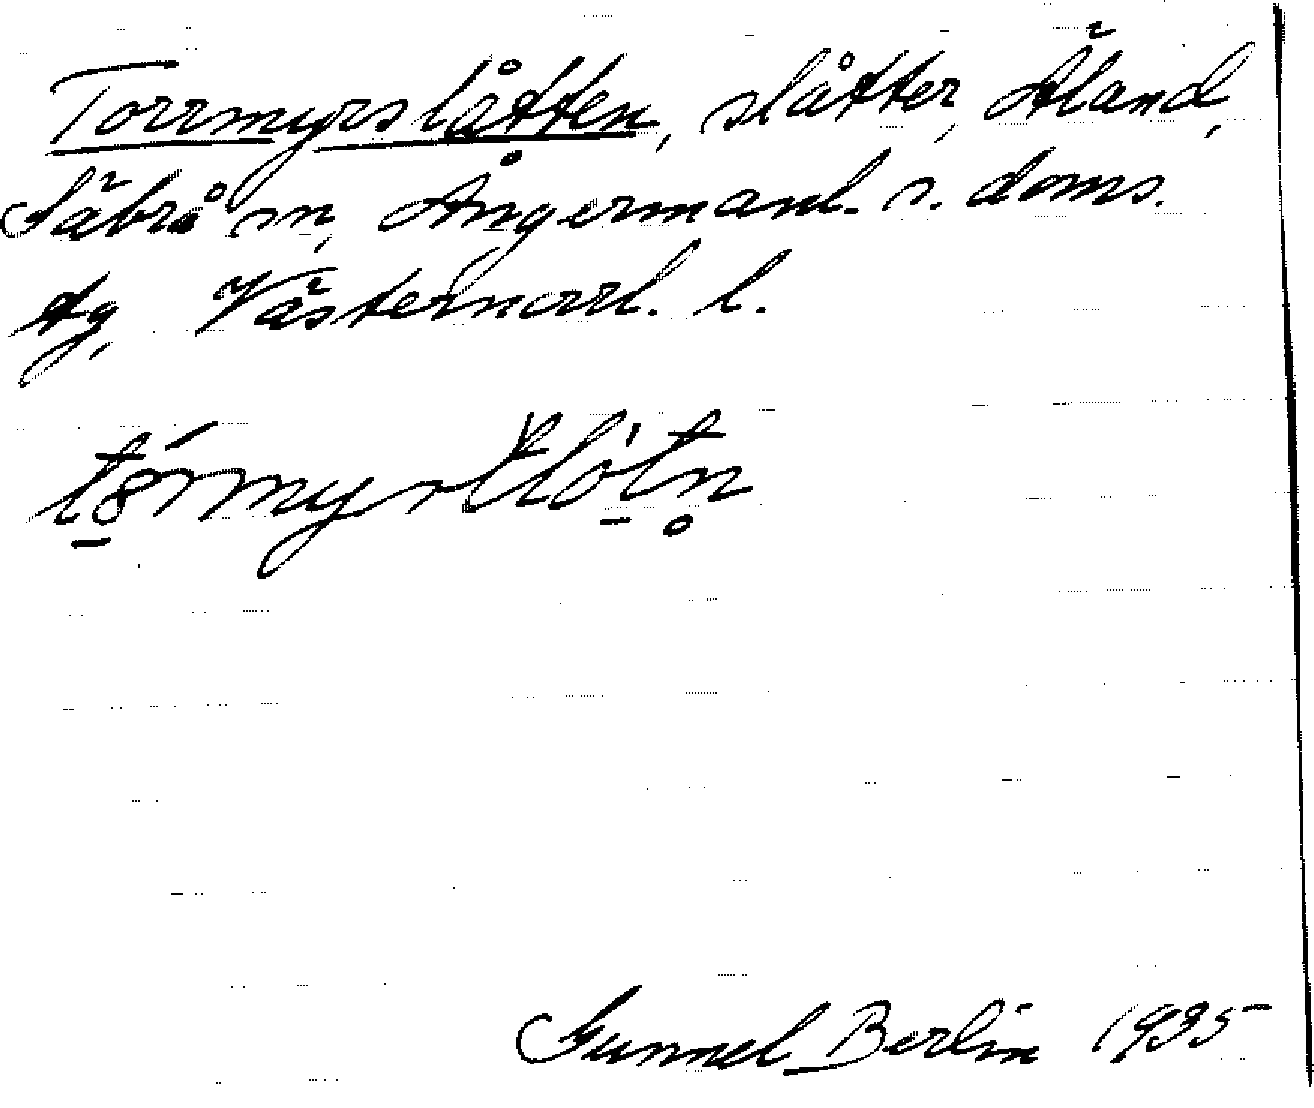 Torrmyrslåtten, slåtter, Äland,
Säbrå sn, Ångermanl. s. doms.
tg, Västernorrl. l.
Gunnel Berlin 1935